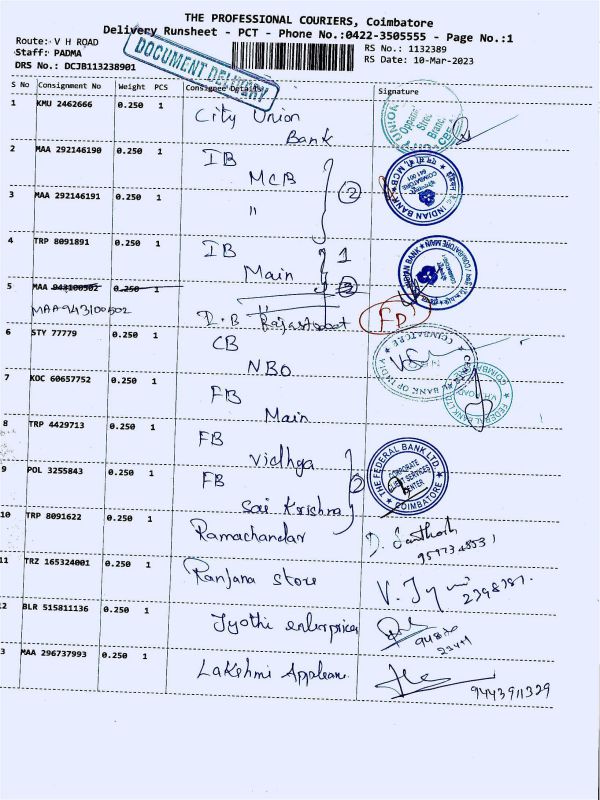 THE PROFESSIONAL COURIERS, Coimbatore
Delivery Runsheet - PCT - Phone No.:0422-3505555 - Page No.:1
Route: V H ROAD
RS No.: 1132389
Staff: PADMA
RS Date: 10-Mar-2023
DRS No.: DCJB113238901
DOCUMENT DELIVERY
S No Consignment No Weight PCS Consignee Details Signature
1 KMU 2462666 0.250 1 City Union
Bank
2 MAA 292146190 0.250 1 IB
MCB 2
3 MAA 292146191 0.250 1 "
INDIAN BANK
COIMBATORE
641 001
4 TRP 8091891 0.250 1 IB 1
Main
INDIAN BANK
5 MAA 943100502 0.250 1
MAA943100502 I.B FD
6 STY 77779 0.250 1 CB
NBO
COIMBATORE
BANK OF INDIA
7 KOC 60657752 0.250 1 FB
Main
FEDERAL BANK LTD
V.H. ROAD
COIMBATORE
8 TRP 4429713 0.250 1 FB
Vidhga
9 POL 3255843 0.250 1 FB 2
Sai Krishna
THE FEDERAL BANK LTD.
CORPORATE
CLIENT SERVICES
CENTER
COIMBATORE
10 TRP 8091622 0.250 1 Ramachandar D. Santhosh
11 TRZ 165324001 0.250 1 Ranjana store
12 BLR 515811136 0.250 1 Jyothi enterprices
3 MAA 296737993 0.250 1 Lakshmi
9443911329